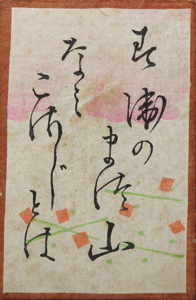 すゑの
まつ山
なみ
こさじ
とは